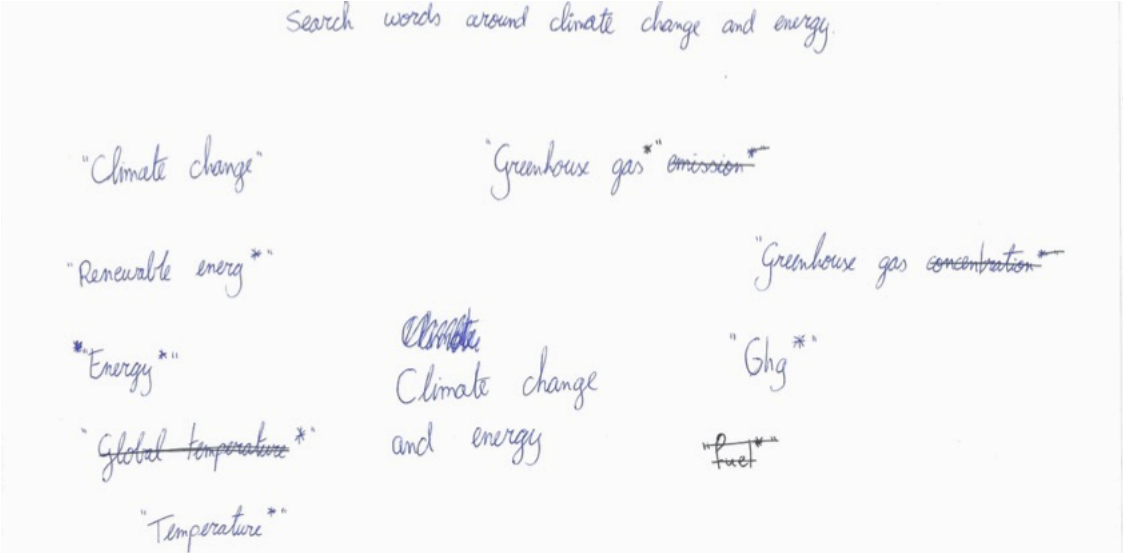 Search words around climate change and energy.
"Climate change"
"Greenhouse gas*" emission*
"Renewable energ*"
"Greenhouse gas concentration*
*"Energy*"
Climate
Climate change
and energy
"Ghg*"
"Global temperature*"
"fuel*"
"Temperature*"